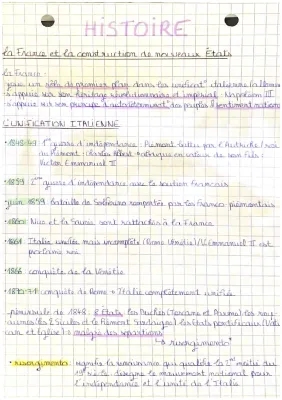 HISTOIRE
La France et la construction de nouveaux États
La France :
joue un rôle de premier plan dans les unificat° italienne (allemande
s'appuie sur son héritage révolutionnaire et impérial Napoléon III
s'appuie sur principe d'autodéterminat° des peuples & sentiment nationa
L'UNIFICATION ITALIENNE
• 1848-49 1ère guerre d'indépendance : Piémont battu par l'Autriche / roi
du Piémont Charles Albert abdique en faveur de son fils :
Victor Emmanuel II
• 1859 2ème guerre d'indépendance avec le soutien français
• juin 1859 Bataille de Solferino remportée par les franco-piémontais
• 1860 Nice et la Savoie sont rattachés à la France
• 1861 Italie unifiée mais incomplète (Rome Vénétie) V. Emmanuel II est
proclamé roi
• 1866 conquête de la Vénétie
• 1870-71 conquête de Rome → Italie complètement unifiée
péninsule de 1848 : 8 États les Duchés (Toscane et Parme) les roy
aumes (les 2 Siciles et le Piémont Sardaigne) les États pontificaux (Vatic
an et église) = malgré des
↳ risorgimento*
• risorgimento : signifie la renaissance qui qualifie la 2nd moitié du
19e siècle, désigne le mouvement national pour
l'indépendance et l'unité de l'Italie